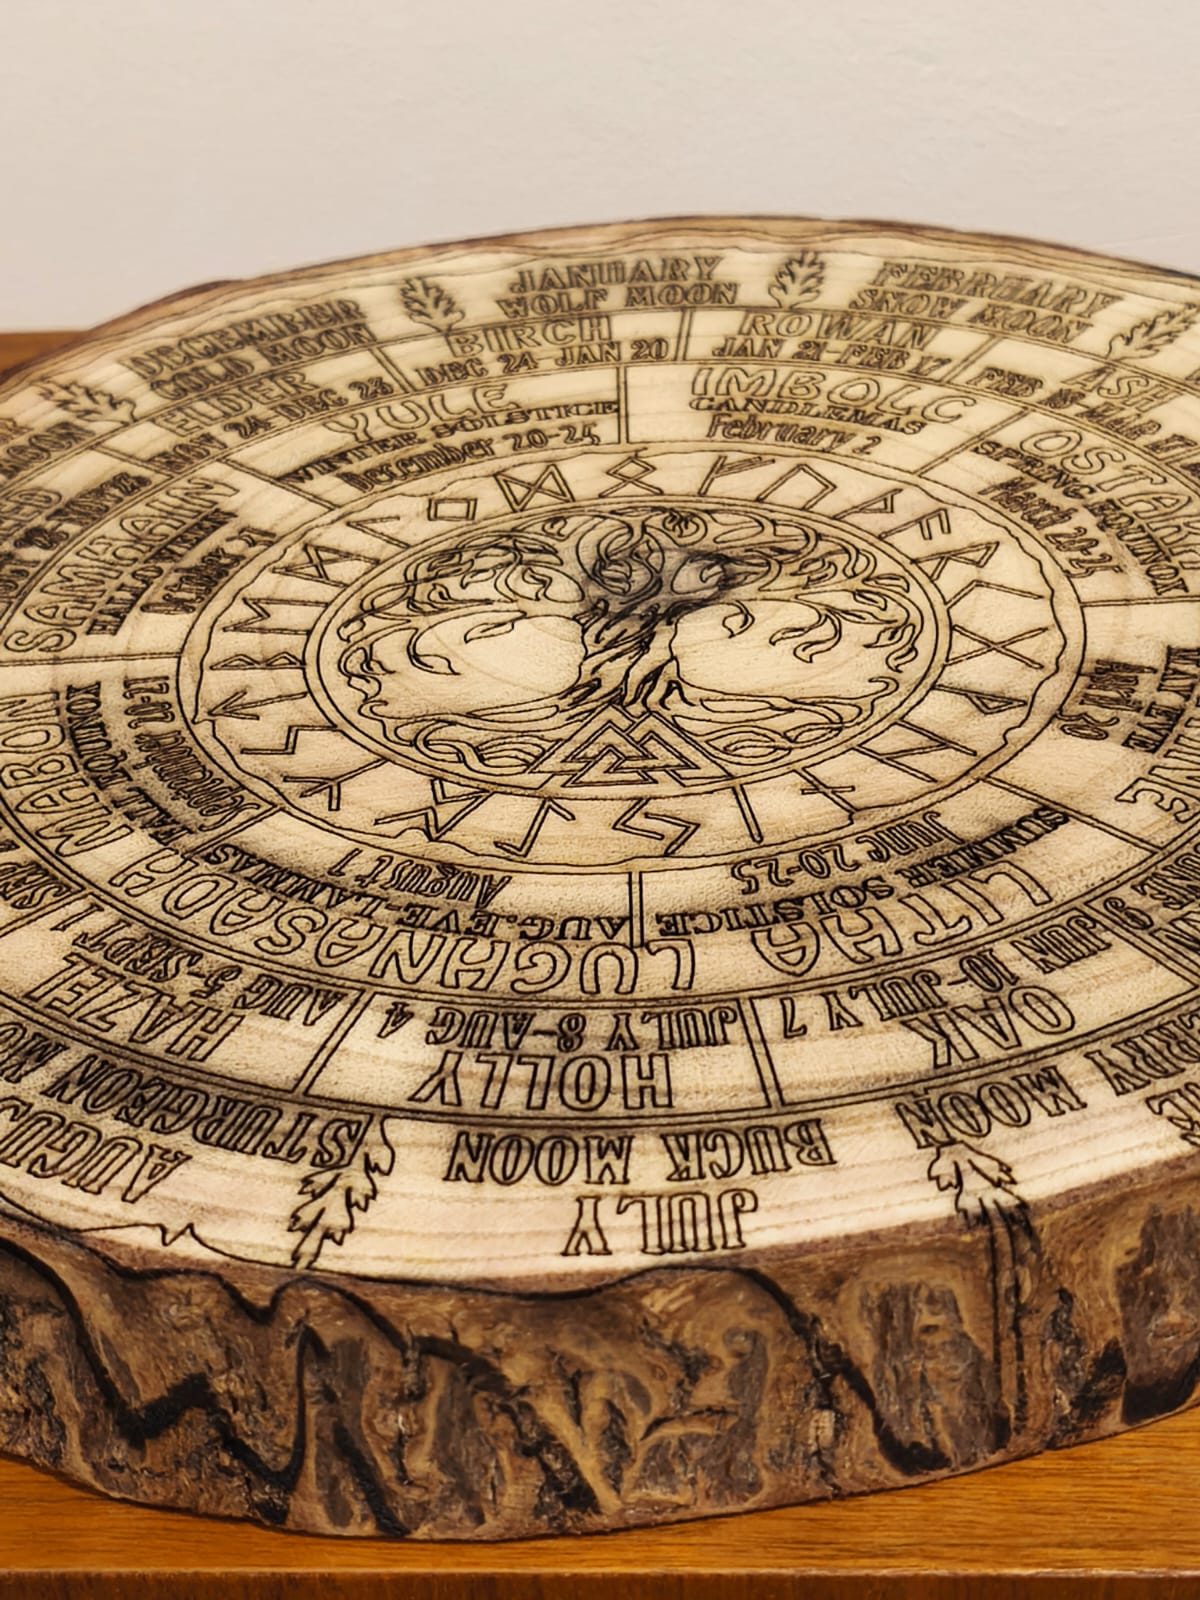 JANUARY
WOLF MOON
FEBRUARY
SNOW MOON
DECEMBER
COLD MOON
MOON
BIRCH
DEC 24-JAN 20
ROWAN
JAN 21-FEB 17
ASH
FEB 18 MAR 17
ELDER
NOV 24 DEC 23
YULE
WINTER SOLSTICE
December 20-25
IMBOLC
CANDLEMAS
February 2
OSTARA
SPRING EQUINOX
March 20-25
SAMHAIN
HALLOWEEN
MAY EVE
April 30
MABON
FALL EQUINOX
September 22-27
LUGHNASADH
AUG.EVE-LAMMAS
August 1
LITHA
SUMMER SOLSTICE
June 20-25
HAZEL
AUG 5-SEPT 1
HOLLY
JULY 8-AUG 4
OAK
JUN 10-JULY 7
JUN 9
STURGEON MO
AUGUS
BUCK MOON
JULY
MOON